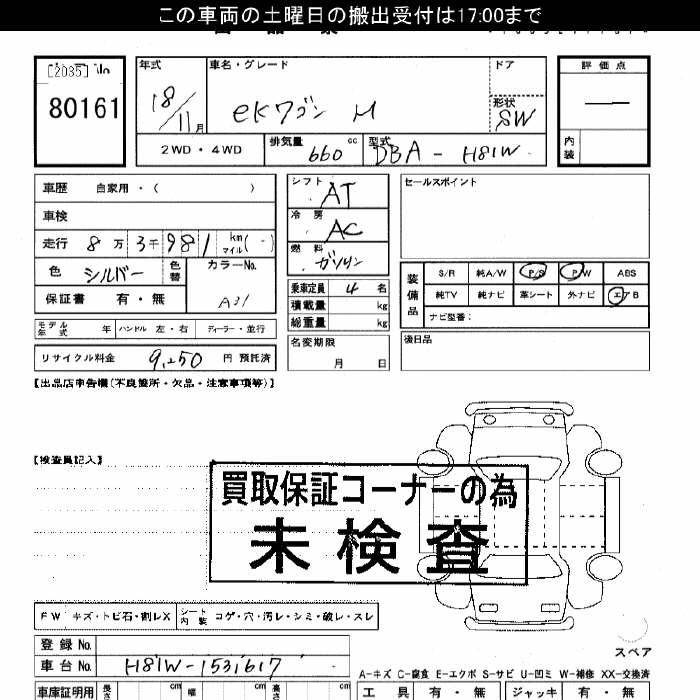 この車両の土曜日の搬出受付は17:00まで
80161
年式
18/11月
車名・グレード
eKワゴン M
ドア
形状
SW
評価点
内装
2WD・4WD
排気量 660 cc
型式 DBA - H81W
車歴 自家用・( )
車検
走行 8万3千981 km マイル(-)
色 シルバー 色替
カラーNo. A31
保証書 有・無
シフト AT
冷房 AC
燃料 ガソリン
乗車定員 4 名
積載量 kg
総重量 kg
名変期限
月 日
セールスポイント
装備品
S/R 純A/W P/S P/W ABS
純TV 純ナビ 革シート 外ナビ エアB
ナビ型番:
後日品
モデル年式 年 ハンドル 左・右 ディーラー・並行
リサイクル料金 9,250 円 預託済
【出品店申告欄(不良箇所・欠品・注意事項等)】
【検査員記入】
買取保証コーナーの為
未検査
FW キズ・トビ石・割レX シート内装 コゲ・穴・汚レ・シミ・破レ・スレ
スペア
登録No.
車台No. H81W-1531617
A-キズ C-腐食 E-エクボ S-サビ U-凹ミ W-補修 XX-交換済
車庫証明用 長さ cm 幅 cm 高さ cm
工具 有・無 ジャッキ 有・無